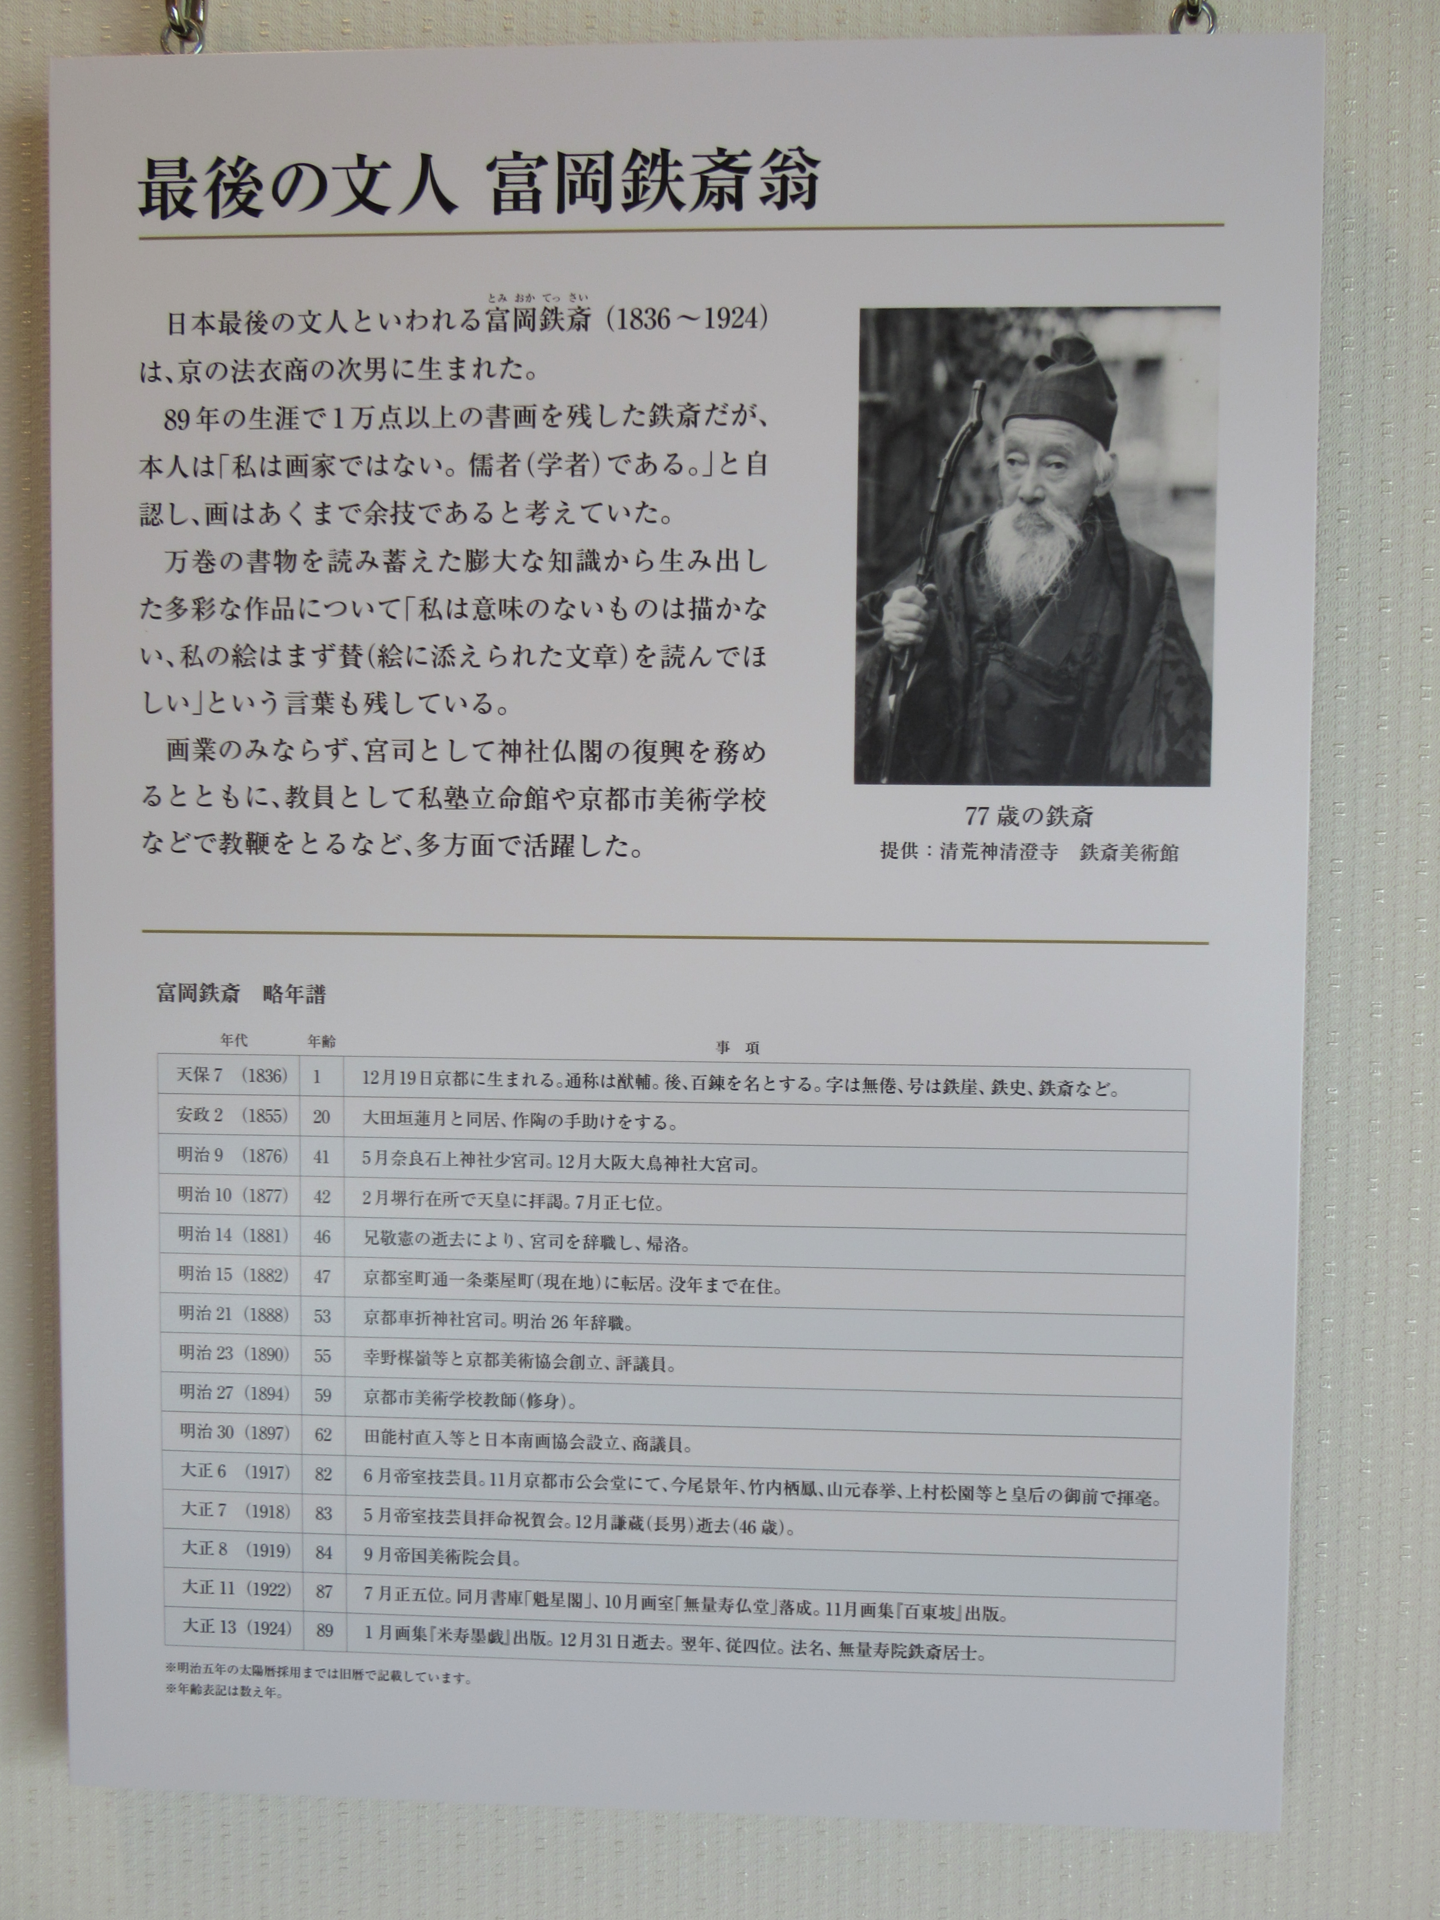 最後の文人 富岡鉄斎翁
とみ おか てっ さい
日本最後の文人といわれる富岡鉄斎（1836～1924）
は、京の法衣商の次男に生まれた。
89年の生涯で1万点以上の書画を残した鉄斎だが、
本人は「私は画家ではない。儒者（学者）である。」と自
認し、画はあくまで余技であると考えていた。
万巻の書物を読み蓄えた膨大な知識から生み出し
た多彩な作品について「私は意味のないものは描かな
い、私の絵はまず賛（絵に添えられた文章）を読んでほ
しい」という言葉も残している。
画業のみならず、宮司として神社仏閣の復興を務め
るとともに、教員として私塾立命館や京都市美術学校
などで教鞭をとるなど、多方面で活躍した。
77歳の鉄斎
提供：清荒神清澄寺　鉄斎美術館
富岡鉄斎　略年譜
年代 年齢 事項
天保7（1836） 1 12月19日京都に生まれる。通称は猷輔。後、百錬を名とする。字は無倦、号は鉄崖、鉄史、鉄斎など。
安政2（1855） 20 大田垣蓮月と同居、作陶の手助けをする。
明治9（1876） 41 5月奈良石上神社少宮司。12月大阪大鳥神社大宮司。
明治10（1877） 42 2月堺行在所で天皇に拝謁。7月正七位。
明治14（1881） 46 兄敬憲の逝去により、宮司を辞職し、帰洛。
明治15（1882） 47 京都室町通一条薬屋町（現在地）に転居。没年まで在住。
明治21（1888） 53 京都車折神社宮司。明治26年辞職。
明治23（1890） 55 幸野楳嶺等と京都美術協会創立、評議員。
明治27（1894） 59 京都市美術学校教師（修身）。
明治30（1897） 62 田能村直入等と日本南画協会設立、商議員。
大正6（1917） 82 6月帝室技芸員。11月京都市公会堂にて、今尾景年、竹内栖鳳、山元春挙、上村松園等と皇后の御前で揮毫。
大正7（1918） 83 5月帝室技芸員拝命祝賀会。12月謙蔵（長男）逝去（46歳）。
大正8（1919） 84 9月帝国美術院会員。
大正11（1922） 87 7月正五位。同月書庫「魁星閣」、10月画室「無量寿仏堂」落成。11月画集『百東坡』出版。
大正13（1924） 89 1月画集『米寿墨戯』出版。12月31日逝去。翌年、従四位。法名、無量寿院鉄斎居士。
※明治五年の太陽暦採用までは旧暦で記載しています。
※年齢表記は数え年。